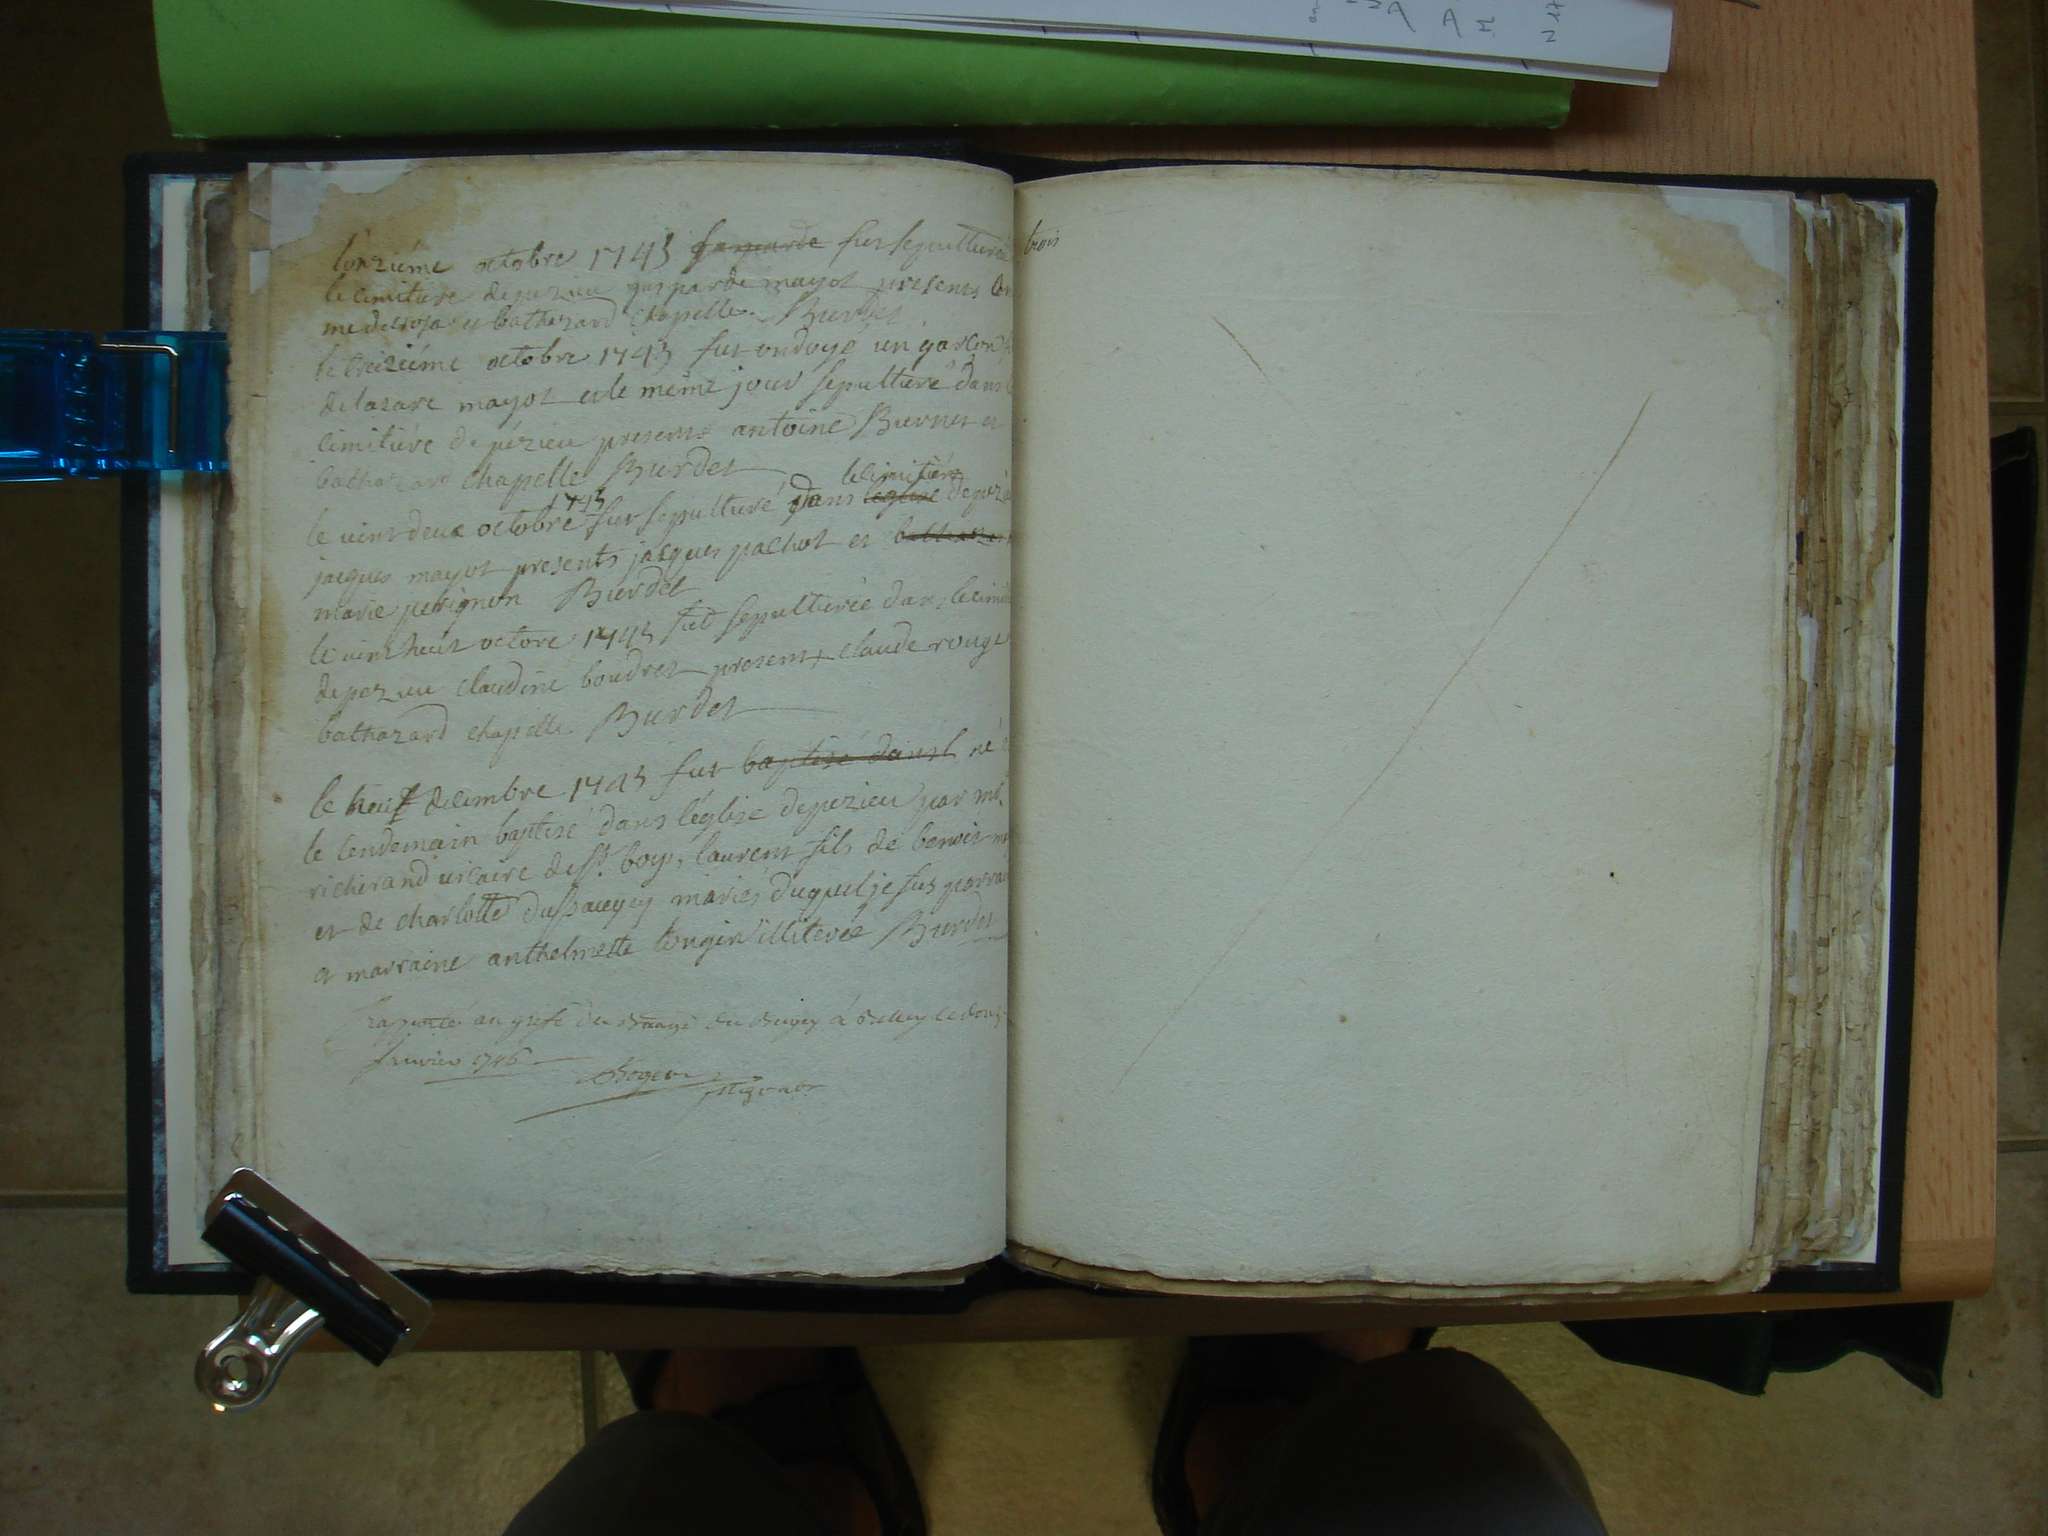 l'onziéme octobre 1745 gasparde fut sepulturée
le cimitiere de pezieu gasparde mayot presents
me et balthazard chapelle. Burdet
le treiziéme octobre 1745 fut ondoyé un garcon
de lazare mayot et le méme jour sepulturé dans
cimitiére de pézieu presents antoine Burnet et
balthazard chapelle Burdet
le cimitiére
1745
le vint deux octobre fut sepulturé dans leglise de pezi
jacques mayot presents jacques pachot et balthazar
marie perignon Burdet
le vint huit octore 1745 fut sepulturée dans le cimi
de pezieu claudine boudret presents claude rouge
balthazard chapelle Burdet
le huit decembre 1745 fut baptise dans l né
le lendemain baptisé dans l'église de pezieu par mr.
richerand vicaire de st. boys, laurent fils de benoit
et de charlotte dussaugey mariés duquel je fus parrai
et marraine anthelmette longin illiterée Burdet
raporté au grefe du Bugey à Belley le
Janvier 1746
trois